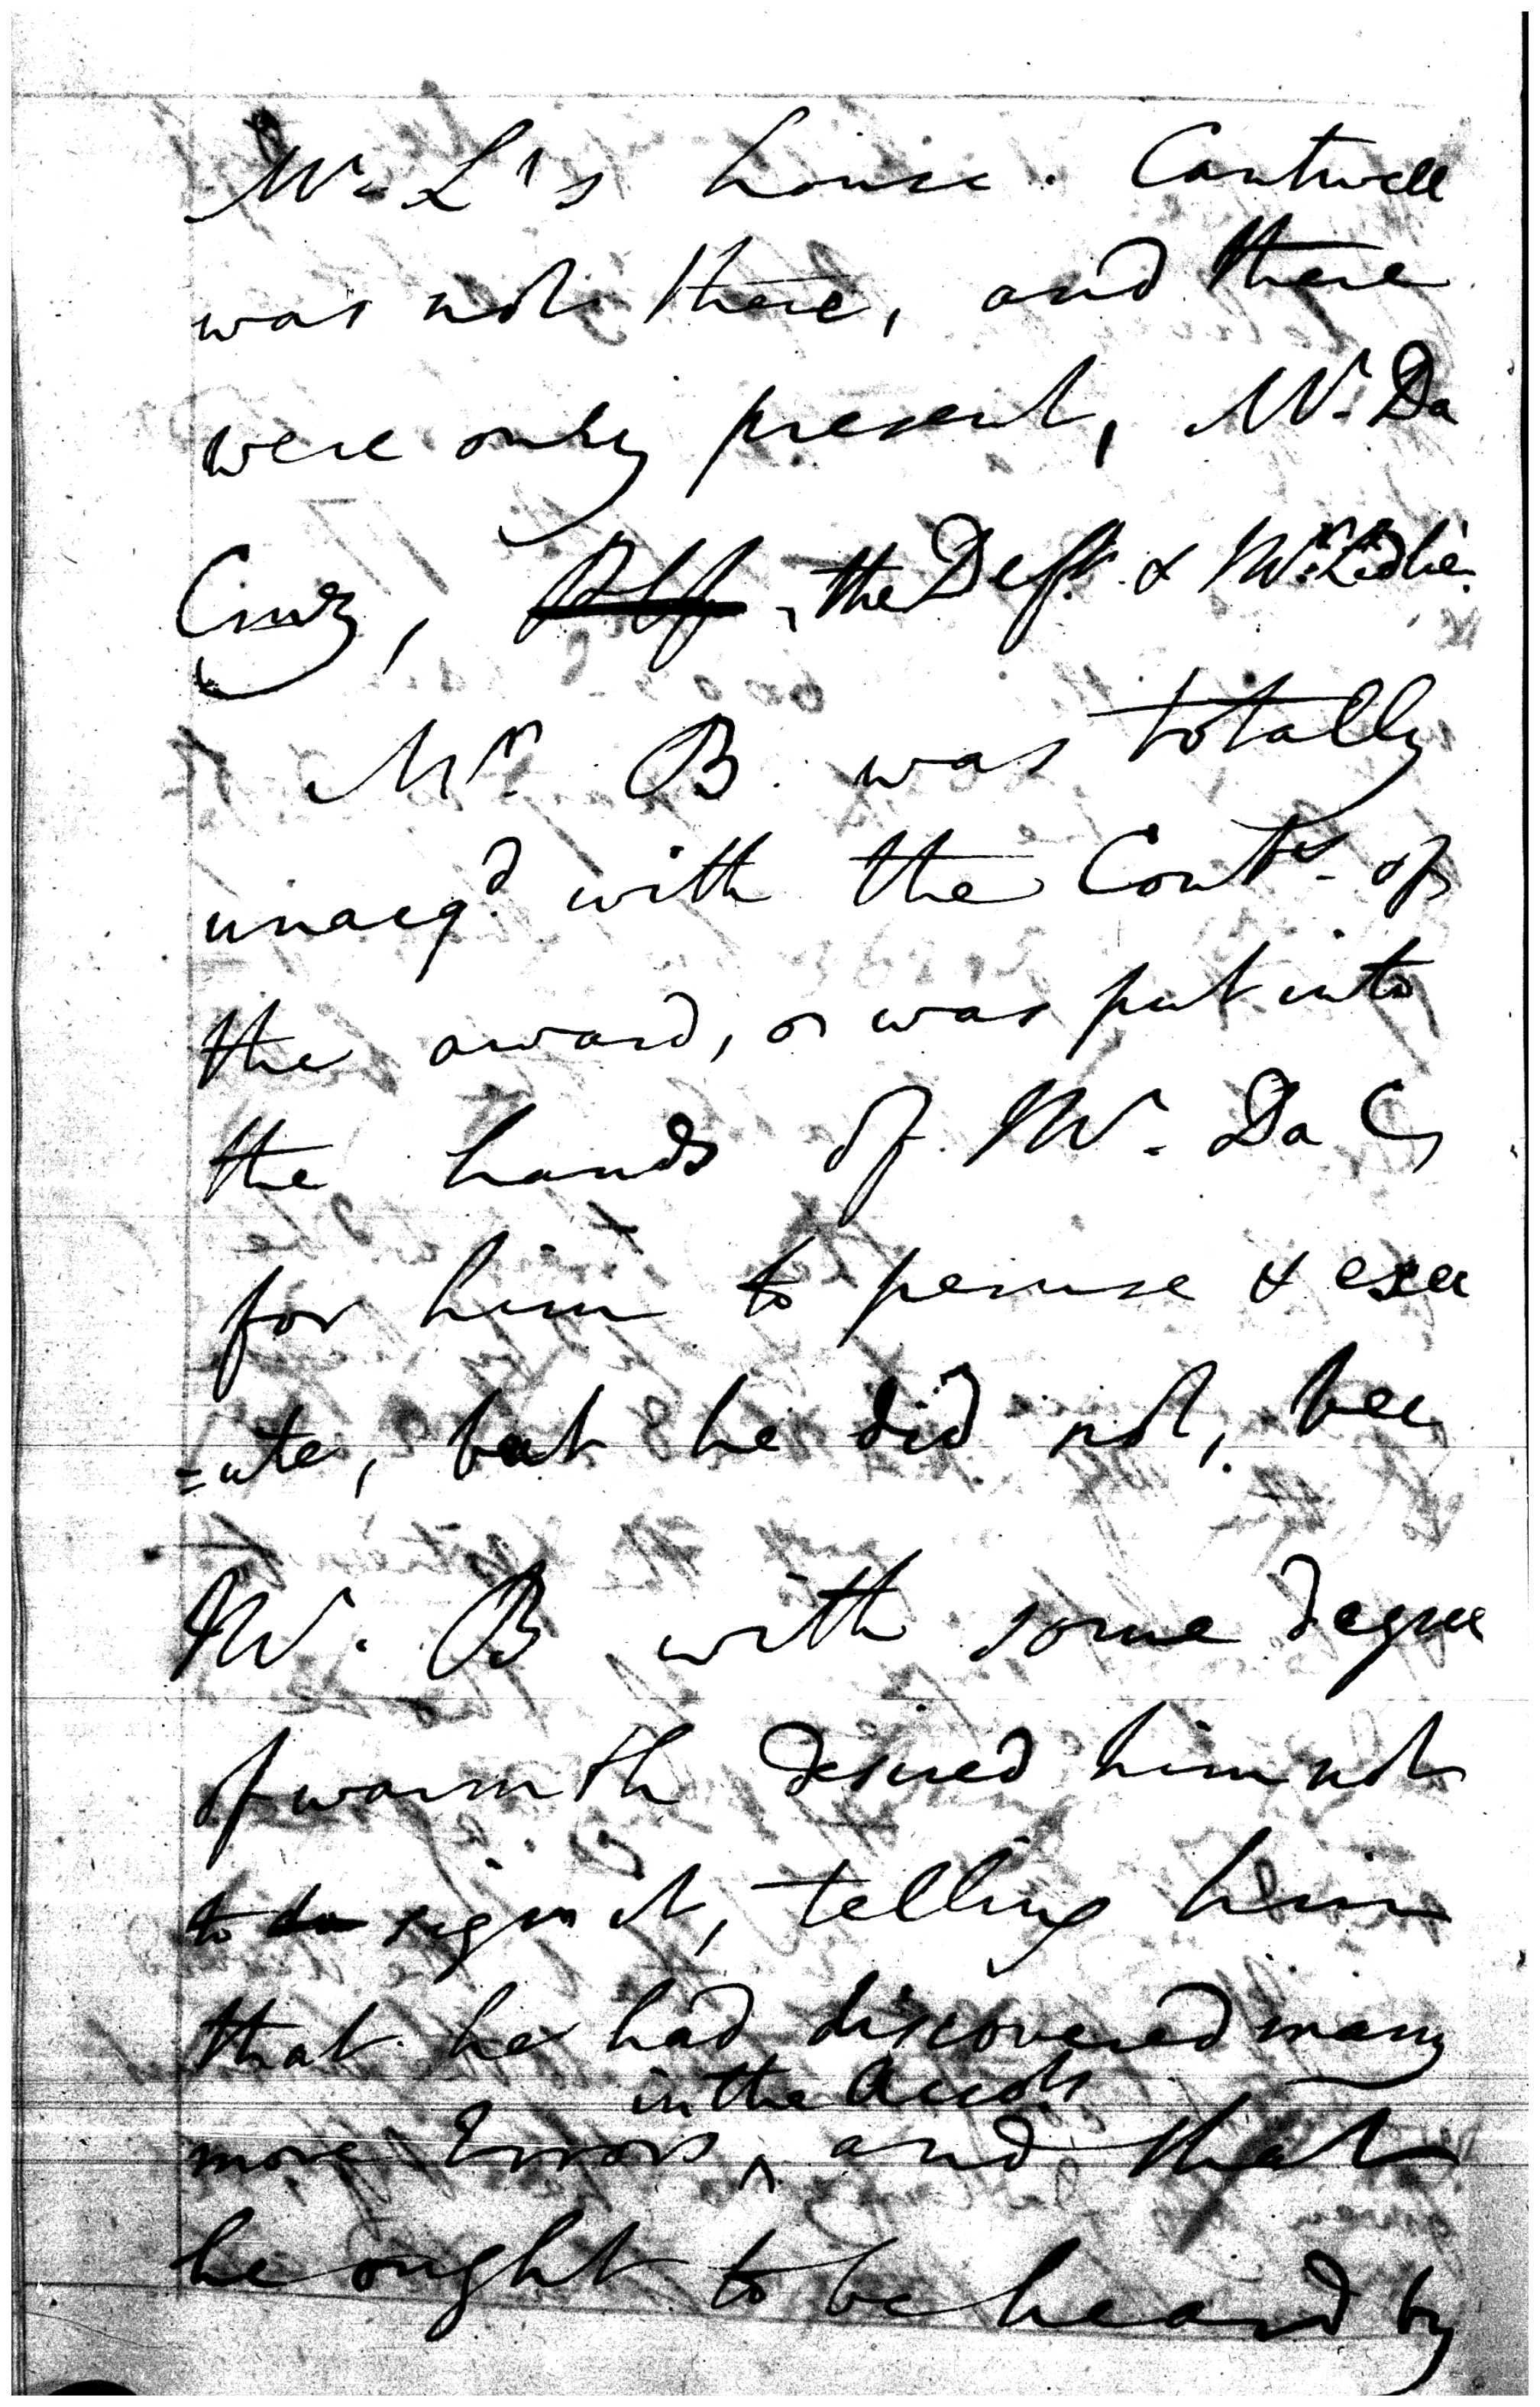 Mr. L's house. Cantwell
was not there, and there
were only present, Mr. Da
Cruz, Plff, the Deft. & Mr. Ledlie.
Mr. B. was totally
unacqd. with the Conts. of
the award, or was put into
the hands of Mr. Da C
for him to peruse & exec
=ute, but he did not, bec
Mr. B with some degree
of warmth desired him not
to do sign it, telling him
that he had discovered many
in the Accots
more Errors ^ and that
he ought to be heard by